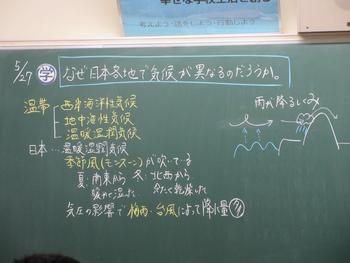 幸せな学校生活を創る
考えよう・話をしよう・行動しよう
5/27 学 なぜ日本各地で気候が異なるのだろうか。
温帯 西岸海洋性気候
地中海性気候
温暖湿潤気候
雨が降るしくみ
日本…温暖湿潤気候
季節風(モンスーン)が吹いている
夏:南東から 冬:北西から
暖かく湿った 冷たく乾燥した
気圧の影響で梅雨・台風によって降水量多